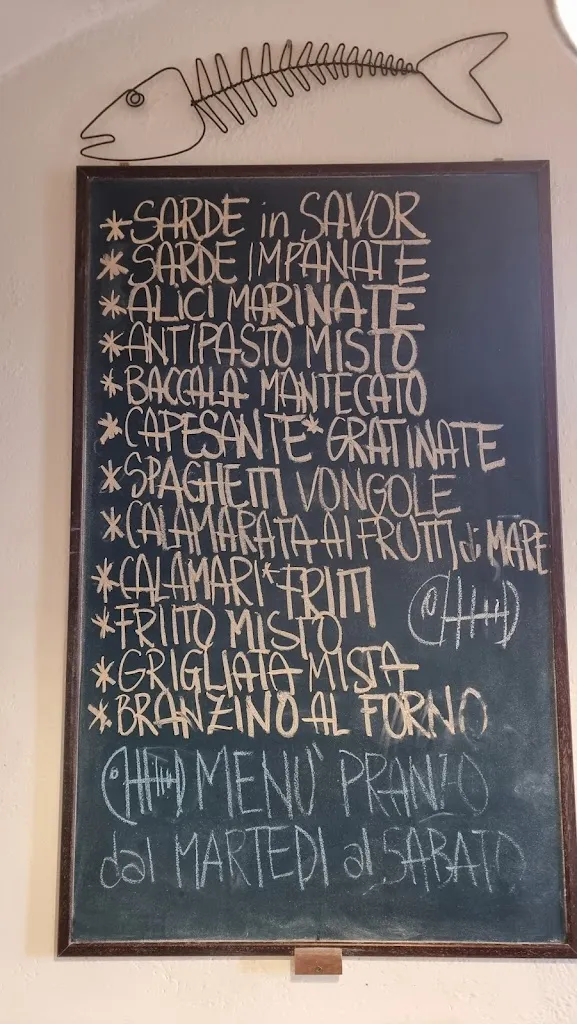 *SARDE in SAVOR
*SARDE IMPANATE
*ALICI MARINATE
*ANTIPASTO MISTO
*BACCALA' MANTECATO
*CAPESANTE* GRATINATE
*SPAGHETTI VONGOLE
*CALAMARATA AI FRUTTI di MARE
*CALAMARI* FRITTI
*FRITTO MISTO
*GRIGLIATA MISTA
*BRANZINO AL FORNO
MENU' PRANZO
dal MARTEDI al SABATO